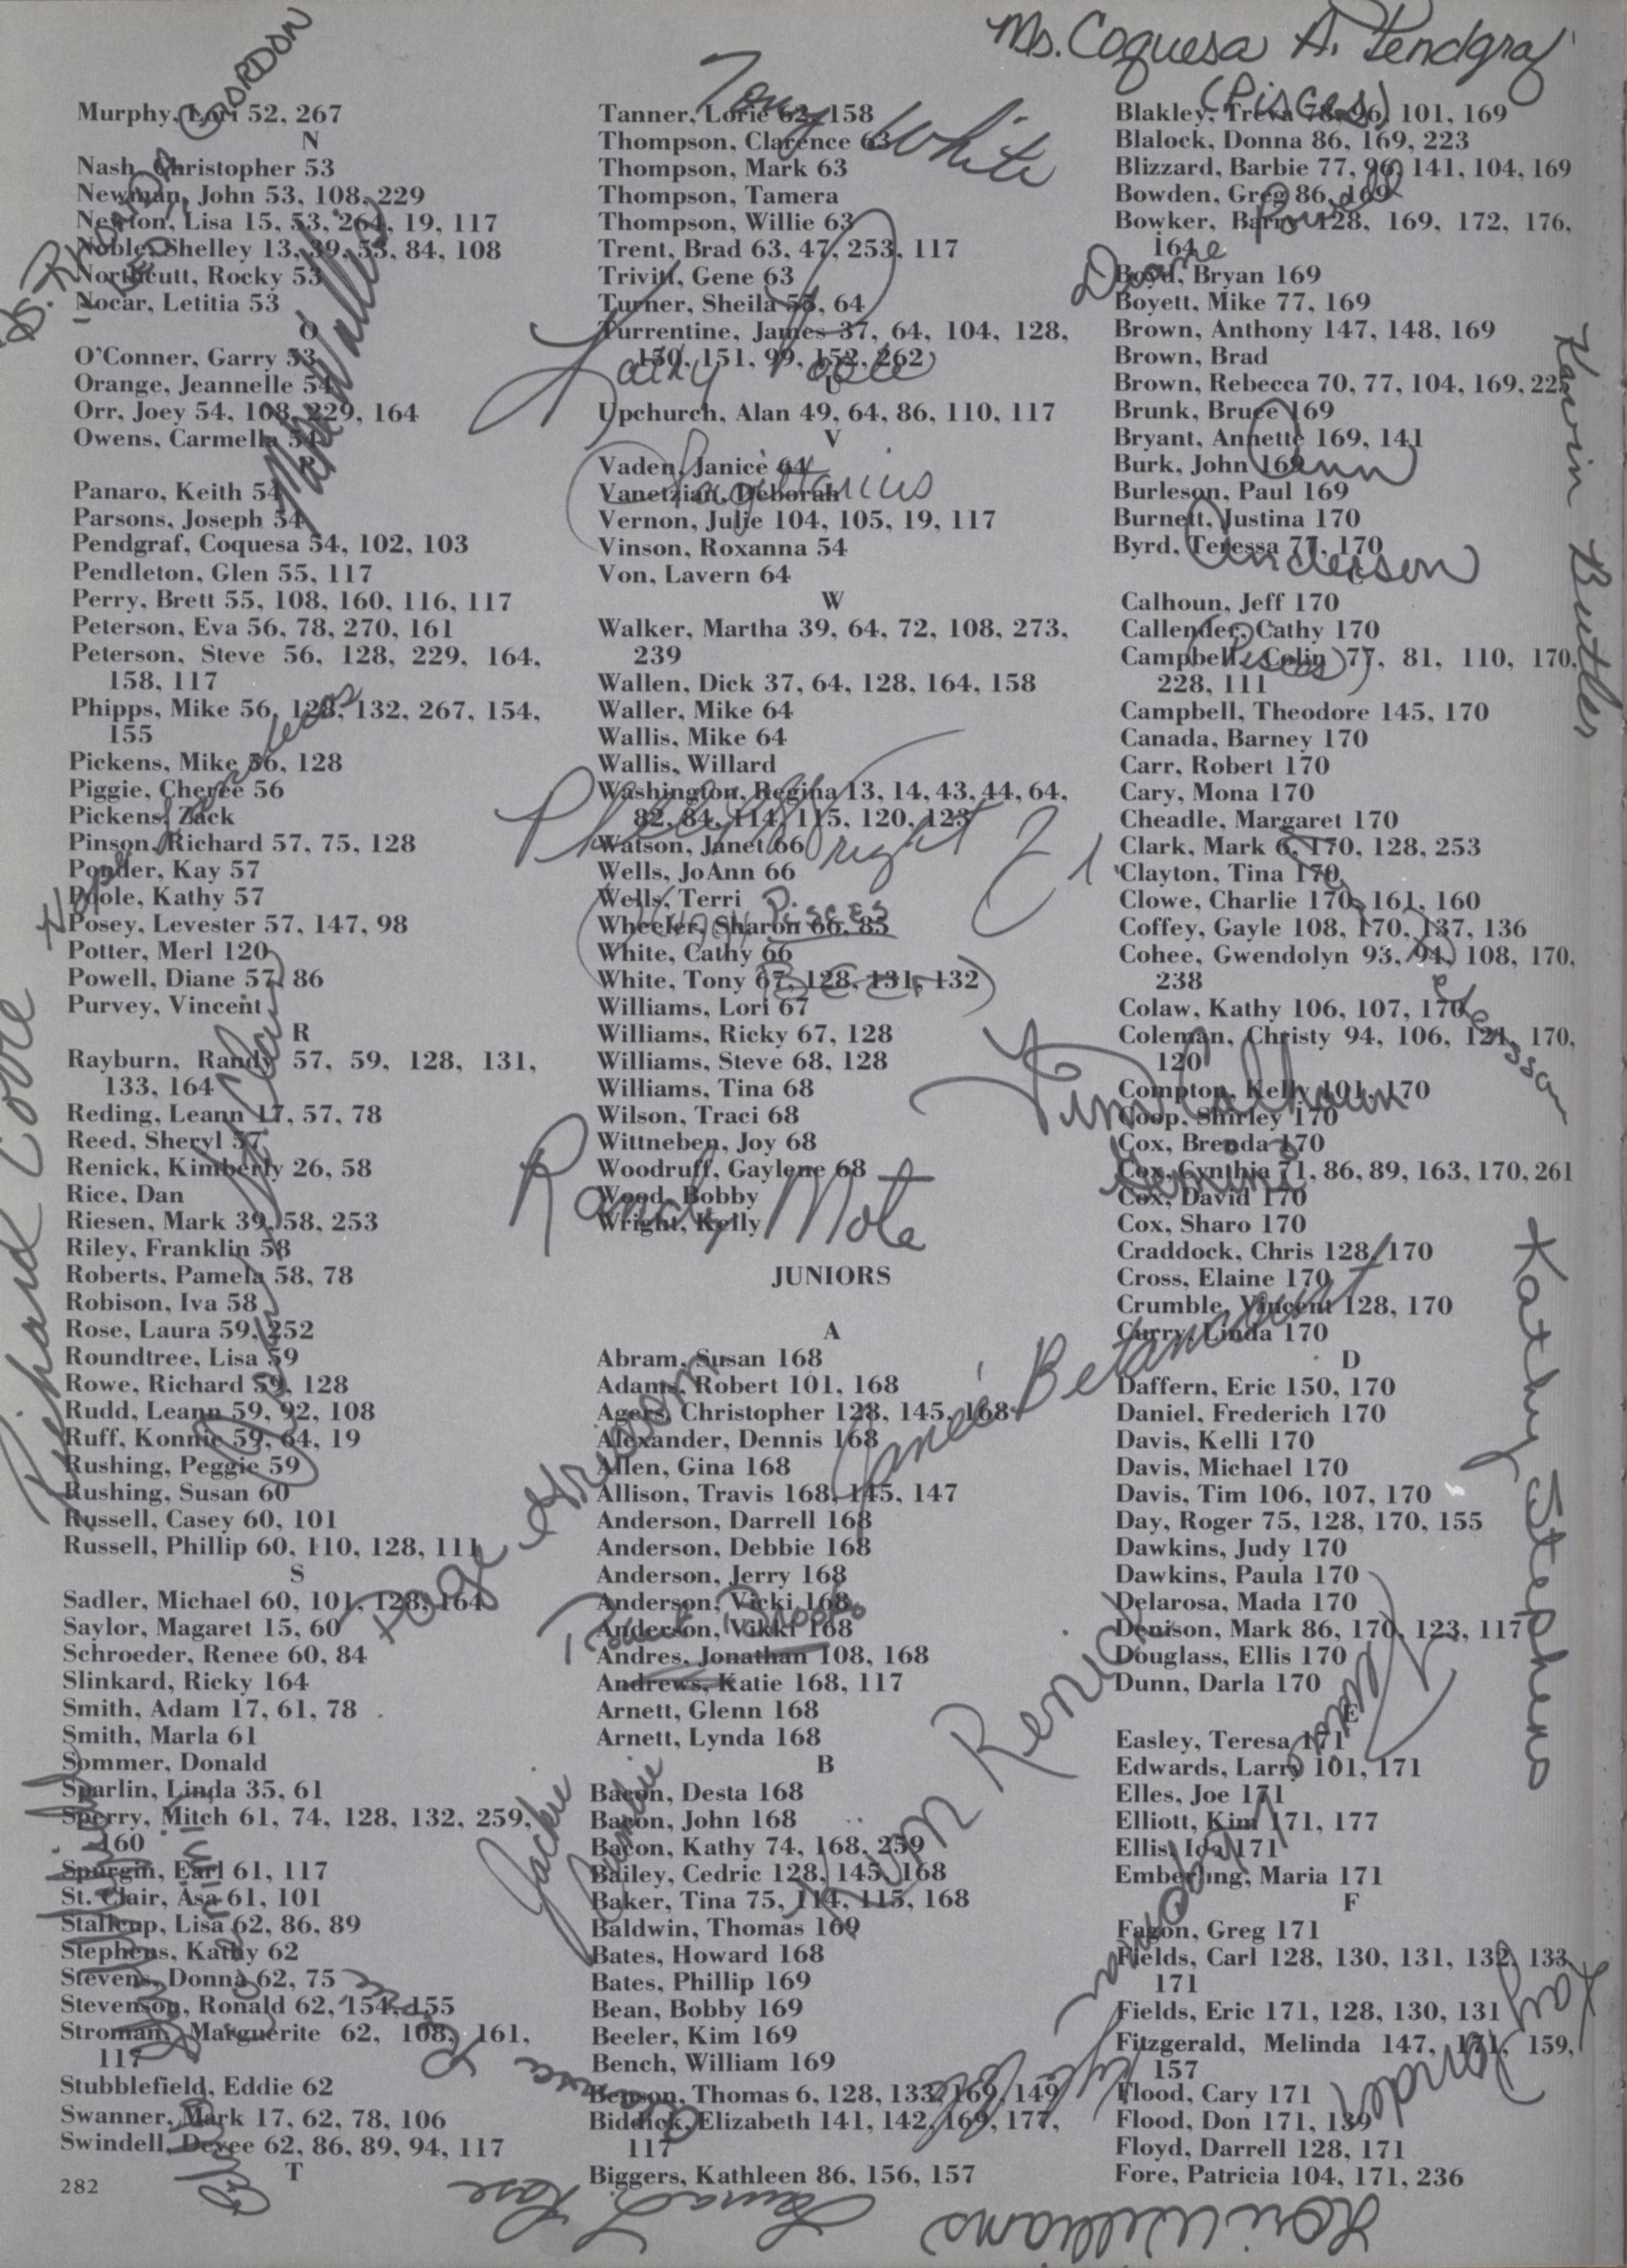 Ms. Coquesa A. Pendgraf
(Pisces)
Murphy, Lori 52, 267
N
Nash, Christopher 53
Newman, John 53, 108, 229
Newton, Lisa 15, 53, 264, 19, 117
Noble, Shelley 13, 39, 53, 84, 108
Northcutt, Rocky 53
Nocar, Letitia 53
O
O'Conner, Garry 53
Orange, Jeannelle 54
Orr, Joey 54, 108, 229, 164
Owens, Carmella 54
P
Panaro, Keith 54
Parsons, Joseph 54
Pendgraf, Coquesa 54, 102, 103
Pendleton, Glen 55, 117
Perry, Brett 55, 108, 160, 116, 117
Peterson, Eva 56, 78, 270, 161
Peterson, Steve 56, 128, 229, 164,
158, 117
Phipps, Mike 56, 128, 132, 267, 154,
155
Pickens, Mike 56, 128
Piggie, Cheree 56
Pickens, Zack
Pinson, Richard 57, 75, 128
Ponder, Kay 57
Poole, Kathy 57
Posey, Levester 57, 147, 98
Potter, Merl 120
Powell, Diane 57, 86
Purvey, Vincent
R
Rayburn, Randy 57, 59, 128, 131,
133, 164
Reding, Leann 17, 57, 78
Reed, Sheryl 57
Renick, Kimberly 26, 58
Rice, Dan
Riesen, Mark 39, 58, 253
Riley, Franklin 58
Roberts, Pamela 58, 78
Robison, Iva 58
Rose, Laura 59, 252
Roundtree, Lisa 59
Rowe, Richard 59, 128
Rudd, Leann 59, 92, 108
Ruff, Konnie 59, 64, 19
Rushing, Peggie 59
Rushing, Susan 60
Russell, Casey 60, 101
Russell, Phillip 60, 110, 128, 111
S
Sadler, Michael 60, 101, 128, 164
Saylor, Magaret 15, 60
Schroeder, Renee 60, 84
Slinkard, Ricky 164
Smith, Adam 17, 61, 78
Smith, Marla 61
Sommer, Donald
Sparlin, Linda 35, 61
Sperry, Mitch 61, 74, 128, 132, 259,
160
Spurgin, Earl 61, 117
St. Clair, Asa 61, 101
Stallcup, Lisa 62, 86, 89
Stephens, Kathy 62
Stevens, Donna 62, 75
Stevenson, Ronald 62, 154, 155
Stroman, Marguerite 62, 108, 161,
117
Stubblefield, Eddie 62
Swanner, Mark 17, 62, 78, 106
Swindell, Devee 62, 86, 89, 94, 117
T
282
Tanner, Lorie 62, 158
Thompson, Clarence 63
Thompson, Mark 63
Thompson, Tamera
Thompson, Willie 63
Trent, Brad 63, 47, 253, 117
Trivitt, Gene 63
Turner, Sheila 55, 64
Turrentine, James 37, 64, 104, 128,
150, 151, 99, 152, 262
U
Upchurch, Alan 49, 64, 86, 110, 117
V
Vaden, Janice 64
Vanetzian, Deborah
Vernon, Julie 104, 105, 19, 117
Vinson, Roxanna 54
Von, Lavern 64
W
Walker, Martha 39, 64, 72, 108, 273,
239
Wallen, Dick 37, 64, 128, 164, 158
Waller, Mike 64
Wallis, Mike 64
Wallis, Willard
Washington, Regina 13, 14, 43, 44, 64,
82, 84, 114, 115, 120, 123
Watson, Janet 66
Wells, JoAnn 66
Wells, Terri
Wheeler, Sharon 66, 85
White, Cathy 66
White, Tony 67, 128, 131, 132
Williams, Lori 67
Williams, Ricky 67, 128
Williams, Steve 68, 128
Williams, Tina 68
Wilson, Traci 68
Wittneben, Joy 68
Woodruff, Gaylene 68
Wood, Bobby
Wright, Kelly
JUNIORS
A
Abram, Susan 168
Adams, Robert 101, 168
Agers, Christopher 128, 145, 168
Alexander, Dennis 168
Allen, Gina 168
Allison, Travis 168, 145, 147
Anderson, Darrell 168
Anderson, Debbie 168
Anderson, Jerry 168
Anderson, Vicki 168
Anderson, Vikki 168
Andres, Jonathan 108, 168
Andrews, Katie 168, 117
Arnett, Glenn 168
Arnett, Lynda 168
B
Bacon, Desta 168
Bacon, John 168
Bacon, Kathy 74, 168, 259
Bailey, Cedric 128, 145, 168
Baker, Tina 75, 114, 115, 168
Baldwin, Thomas 169
Bates, Howard 168
Bates, Phillip 169
Bean, Bobby 169
Beeler, Kim 169
Bench, William 169
Benson, Thomas 6, 128, 133, 169, 149
Biddick, Elizabeth 141, 142, 169, 177,
117
Biggers, Kathleen 86, 156, 157
Blakley, Treva 78, 96, 101, 169
Blalock, Donna 86, 169, 223
Blizzard, Barbie 77, 96, 141, 104, 169
Bowden, Greg 86, 169
Bowker, Barry 128, 169, 172, 176,
164
Boyd, Bryan 169
Boyett, Mike 77, 169
Brown, Anthony 147, 148, 169
Brown, Brad
Brown, Rebecca 70, 77, 104, 169, 22
Brunk, Bruce 169
Bryant, Annette 169, 141
Burk, John 169
Burleson, Paul 169
Burnett, Justina 170
Byrd, Teressa 77, 170
C
Calhoun, Jeff 170
Callender, Cathy 170
Campbell, Colin 77, 81, 110, 170,
228, 111
Campbell, Theodore 145, 170
Canada, Barney 170
Carr, Robert 170
Cary, Mona 170
Cheadle, Margaret 170
Clark, Mark 6, 170, 128, 253
Clayton, Tina 170
Clowe, Charlie 170, 161, 160
Coffey, Gayle 108, 170, 137, 136
Cohee, Gwendolyn 93, 94, 108, 170,
238
Colaw, Kathy 106, 107, 170
Coleman, Christy 94, 106, 121, 170,
120
Compton, Kelly 101, 170
Coop, Shirley 170
Cox, Brenda 170
Cox, Cynthia 71, 86, 89, 163, 170, 261
Cox, David 170
Cox, Sharo 170
Craddock, Chris 128, 170
Cross, Elaine 170
Crumble, Vincent 128, 170
Curry, Linda 170
D
Daffern, Eric 150, 170
Daniel, Frederich 170
Davis, Kelli 170
Davis, Michael 170
Davis, Tim 106, 107, 170
Day, Roger 75, 128, 170, 155
Dawkins, Judy 170
Dawkins, Paula 170
Delarosa, Mada 170
Denison, Mark 86, 170, 123, 117
Douglass, Ellis 170
Dunn, Darla 170
E
Easley, Teresa 171
Edwards, Larry 101, 171
Elles, Joe 171
Elliott, Kim 171, 177
Ellis, Ida 171
Emberling, Maria 171
F
Fagon, Greg 171
Fields, Carl 128, 130, 131, 132, 133,
171
Fields, Eric 171, 128, 130, 131
Fitzgerald, Melinda 147, 171, 159,
157
Flood, Cary 171
Flood, Don 171, 139
Floyd, Darrell 128, 171
Fore, Patricia 104, 171, 236
Tony White
Kathy Poole
Sagittarius
Mike Wallis
Diane Powell
Ann
Anderson
(Pisces)
Kevin Butler
Pisces
Kim Calhoun
Gemini
Randy Mote
Betancourt
Page Grissom
Kathy Stephens
Kim Renick
Jackie
Kay Ponder
Laura L. Rose
Lori Williams